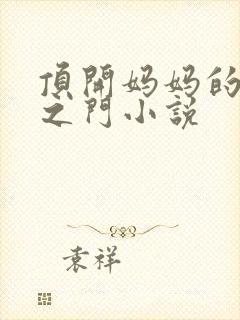 頂開妈妈的
之門小説
袁祥